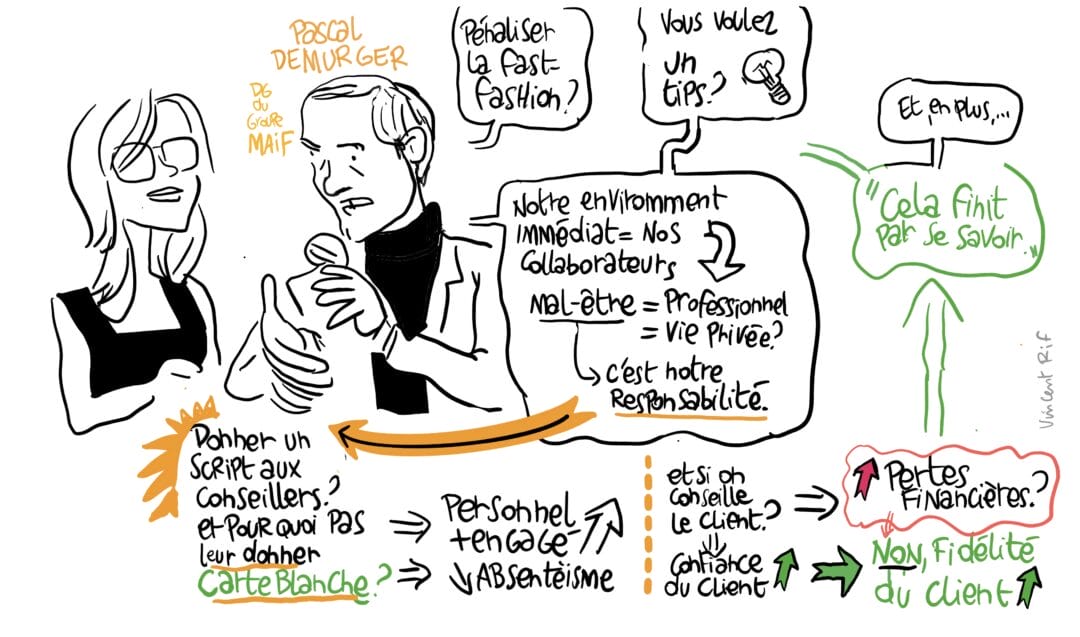 Pascal
DEMURGER
DG
du
Groupe
MAiF
Pénaliser
la fast-
fashion?
Vous voulez
un
tips?
Et, en plus,...
"Cela finit
par se savoir."
Notre enviromment
immédiat = Nos
Collaborateurs
Mal-être = Professionnel
= Vie Privée?
c'est notre
Responsabilité.
Donner un
script aux
conseillers?
et pourquoi pas
leur donner
Carte Blanche?
Personnel
+ engagé
↘ Absentèisme
et si on
conseille
le client?
Confiance
du client
Pertes
Financières?
Non, Fidélité
du client
Vincent Rif